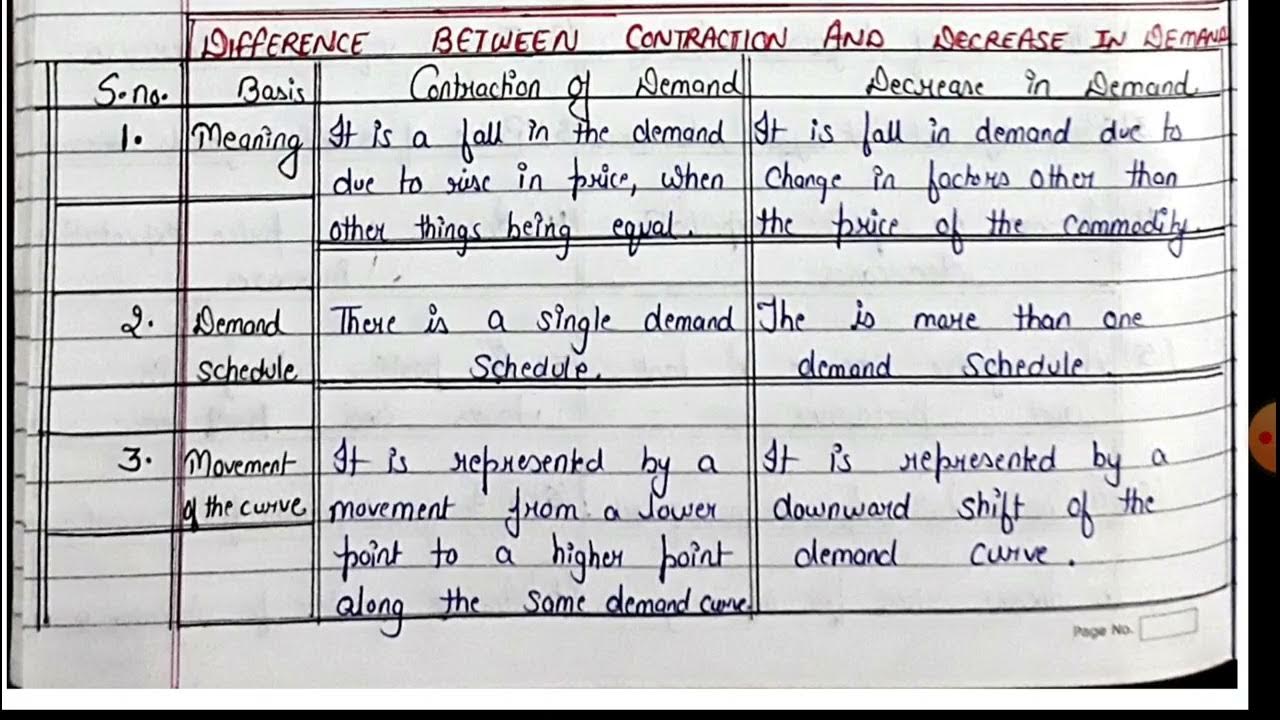 DIFFERENCE BETWEEN CONTRACTION AND DECREASE IN DEMAND
S.no. Basis Contraction of Demand Decrease in Demand
1. Meaning It is a fall in the demand It is fall in demand due to
due to rise in price, when change in factors other than
other things being equal. the price of the commodity.
2. Demand There is a single demand The is more than one
schedule schedule. demand schedule.
3. Movement It is represented by a It is represented by a
of the curve movement from a lower downward shift of the
point to a higher point demand curve.
along the same demand curve
Page No.